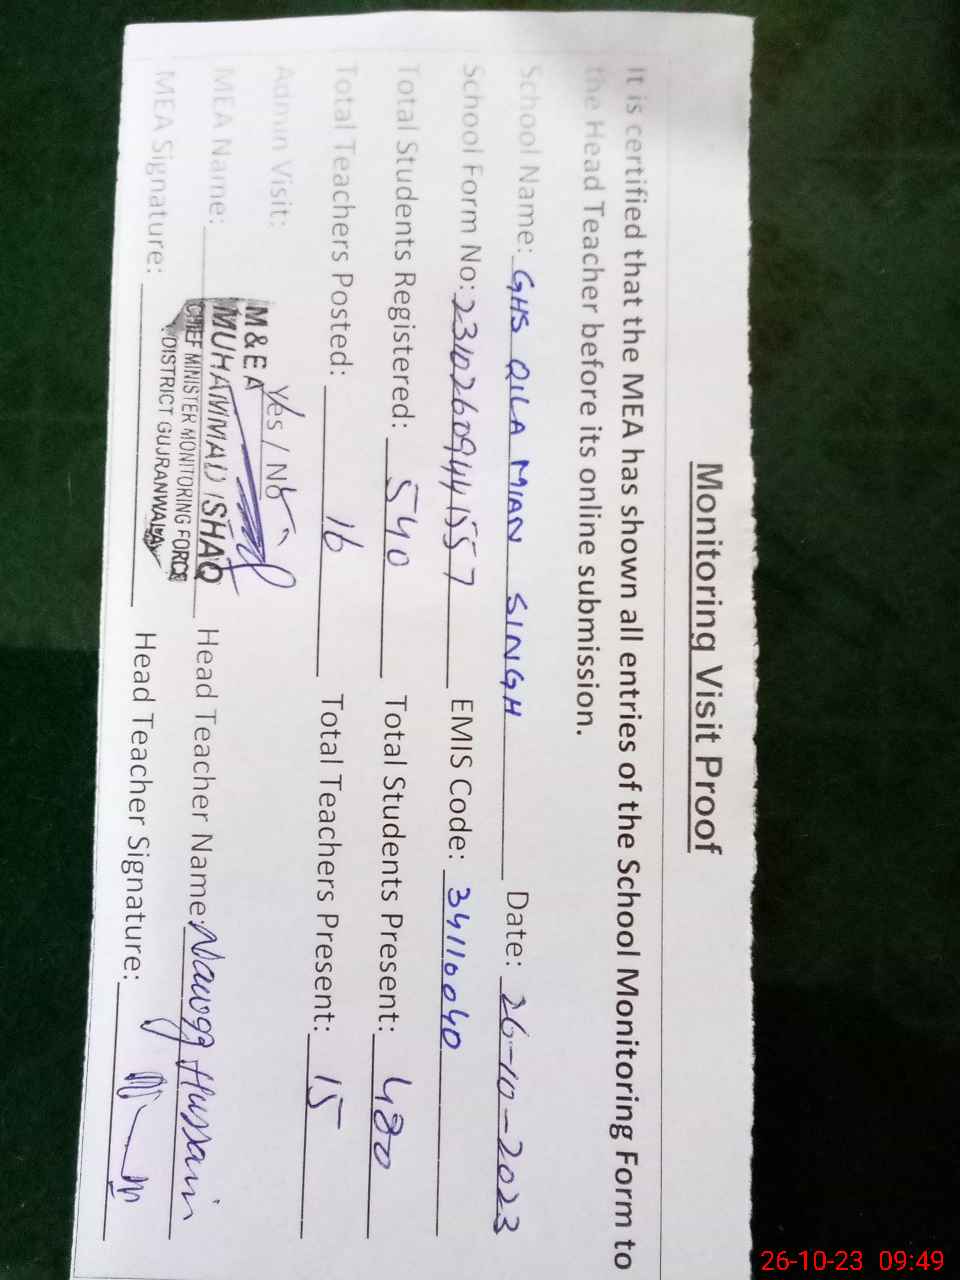 Monitoring Visit Proof
It is certified that the MEA has shown all entries of the School Monitoring Form to
the Head Teacher before its online submission.
School Name: GHS QILA MIAN SINGH Date: 26-10-2023
School Form No: 23102609441557 EMIS Code: 34110040
Total Students Registered: 540 Total Students Present: 480
Total Teachers Posted: 16 Total Teachers Present: 15
Admin Visit: Yes / No
M & E A
MEA Name: MUHAMMAD ISHAQ Head Teacher Name: Hussain
CHIEF MINISTER MONITORING FORCE
DISTRICT GUJRANWALA
MEA Signature: Head Teacher Signature:
26-10-23 09:49